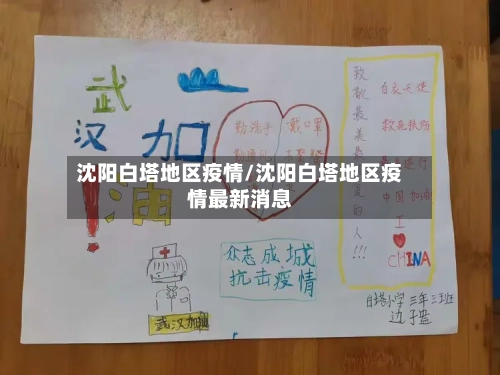 武
汉 加
油
!
勤洗手 戴口罩
沈阳白塔地区疫情/沈阳白塔地区疫
情最新消息
众志成城
抗击疫情
武汉加油
致敬最美
的人!!!
白衣天使
救死扶伤
逆行
中国加油
I
CHINA
白塔小学 三年三班